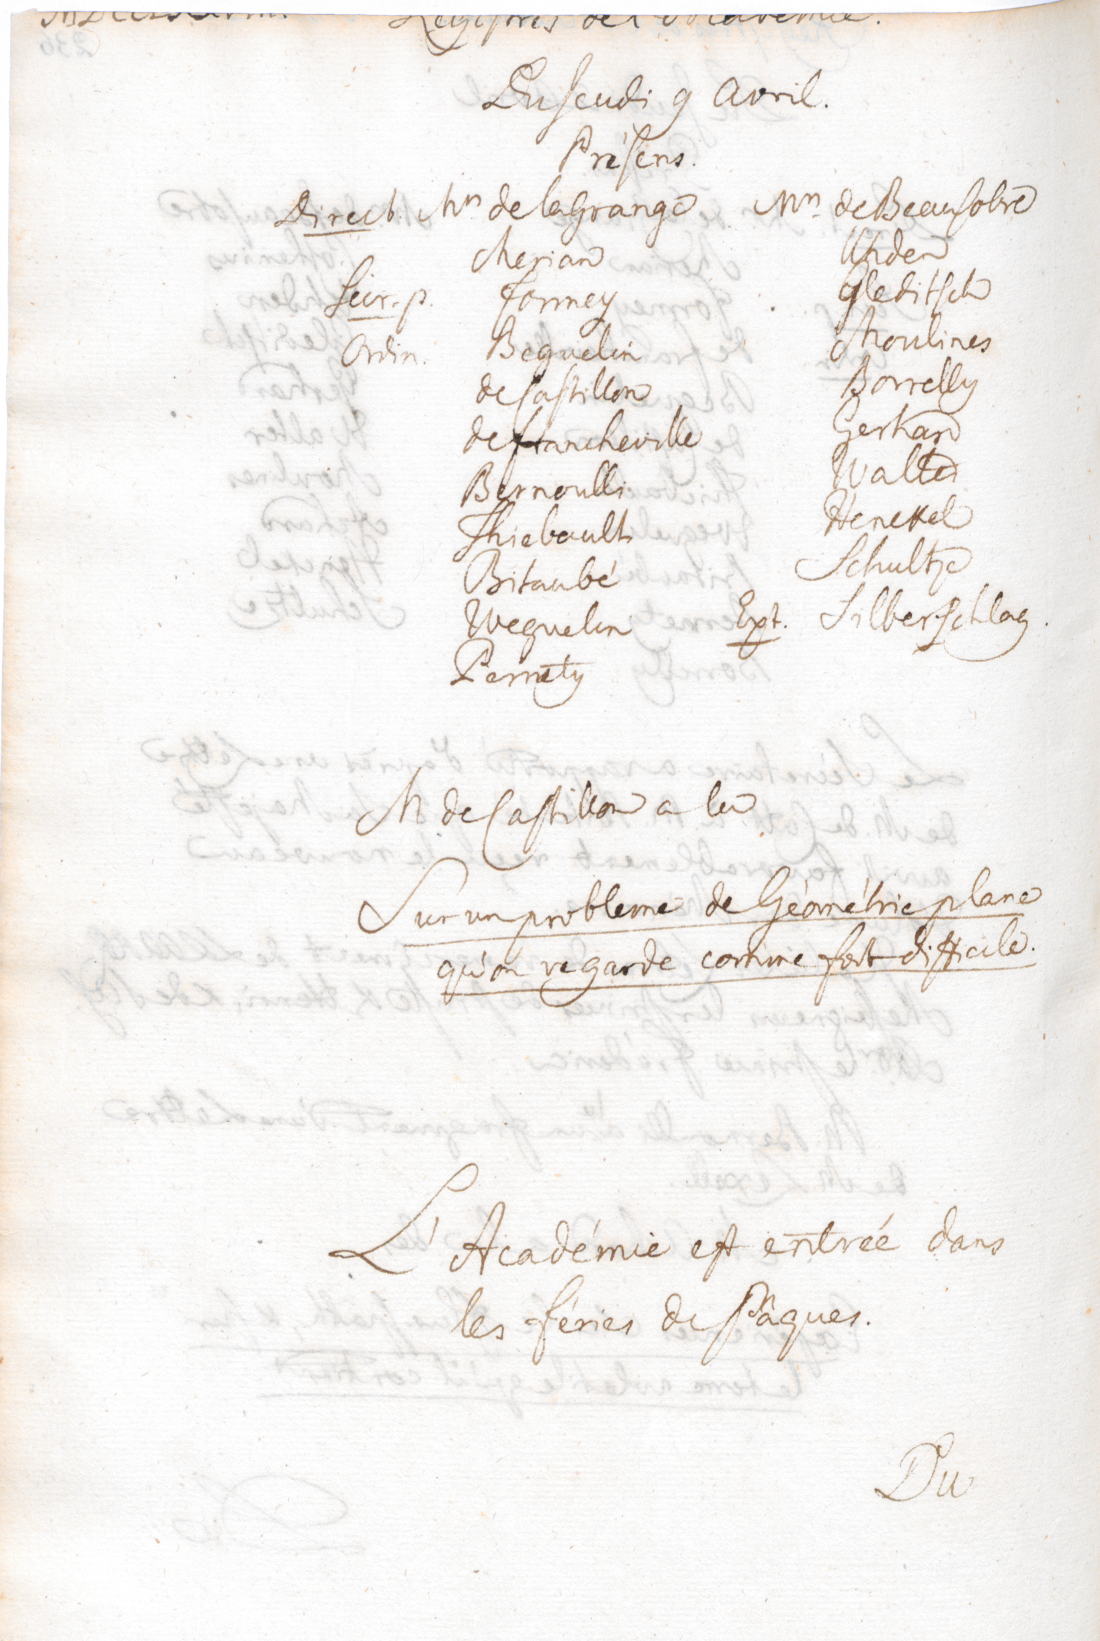 Registres de l'Academie.
Du Jeudi 9 Avril.
Présens.
Direct. Mrs de la Grange Mrs de Beausobre
Merian Uhden
Secr. p. Formey Gleditsch
Ordin. Beguelin Moulines
de Castillon Borrelly
de Francheville Gerhard
Bernoulli Walter
Thiebault Henckel
Bitaubé Schultze
Weguelin Ext. Silberschlag.
Pernety
M. de Castillon a lu
Sur un probleme de Géométrie plane
qu'on regarde comme fort difficile.
L'Académie est entrée dans
les féries de Pâques.
Du